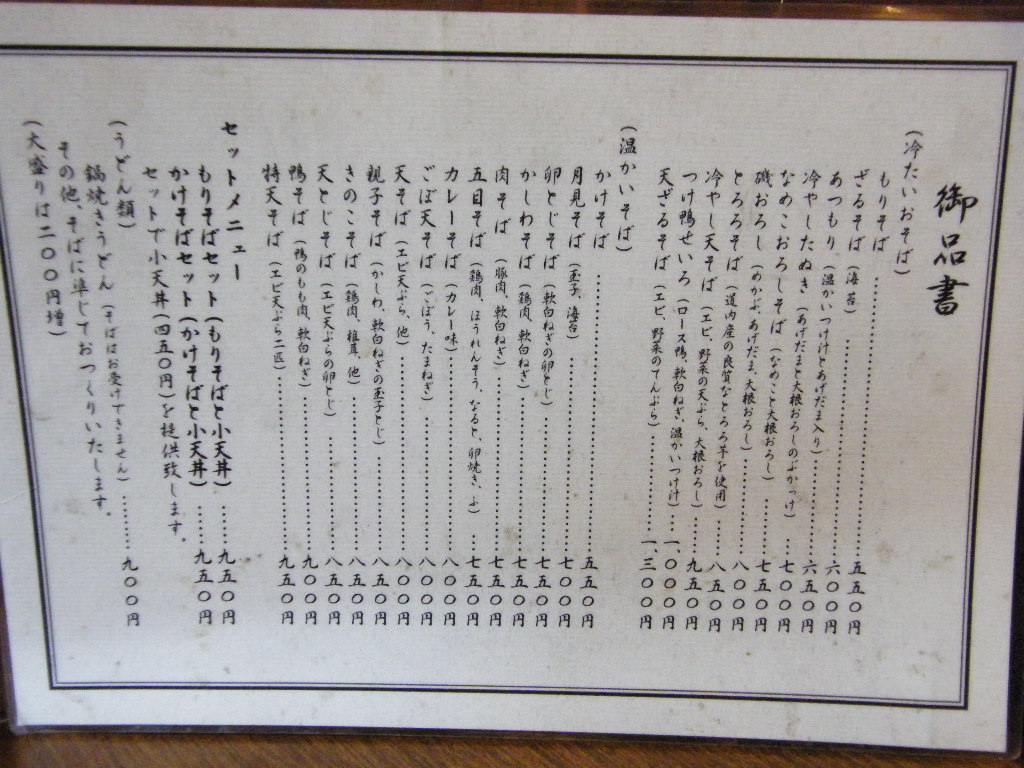 御品書
(冷たいおそば)
もりそば 五五〇円
ざるそば (海苔) 六〇〇円
あつもり (温かいつけ汁とあげだま入り) 六五〇円
冷やしたぬき (あげだまと大根おろしのぶかっけ) 七〇〇円
なめこおろしそば (なめこと大根おろし) 七五〇円
磯おろし (めかぶ、あげだま、大根おろし) 八〇〇円
とろろそば (道内産の良質なとろろ芋を使用) 八五〇円
冷やし天そば (エビ、野菜の天ぷら、大根おろし) 九五〇円
つけ鴨せいろ (ロース鴨、軟白ねぎ、温かいつけ汁) 一、〇〇〇円
天ざるそば (エビ、野菜のてんぷら) 一、三〇〇円
(温かいそば)
かけそば 五五〇円
月見そば (玉子、海苔) 七〇〇円
卵とじそば (軟白ねぎの卵とじ) 七五〇円
かしわそば (鶏肉、軟白ねぎ) 七五〇円
肉そば (豚肉、軟白ねぎ) 七五〇円
五目そば (鶏肉、ほうれんそう、なると、卵焼き、ふ) 七五〇円
カレーそば (カレー味) 八〇〇円
ごぼ天そば (ごぼう、たまねぎ) 八〇〇円
天そば (エビ天ぷら、他) 八〇〇円
親子そば (かしわ、軟白ねぎの玉子とじ) 八五〇円
きのこそば (鶏肉、椎茸、他) 八五〇円
天とじそば (エビ天ぷらの卵とじ) 八五〇円
鴨そば (鴨のもも肉、軟白ねぎ) 九〇〇円
特天そば (エビ天ぷら二匹) 九五〇円
セットメニュー
もりそばセット(もりそばと小天丼) 九五〇円
かけそばセット(かけそばと小天丼) 九五〇円
セットで小天丼(四五〇円)を提供致します。
(うどん類)
鍋焼きうどん (そばはお受けできません) 九〇〇円
その他、そばに準じておつくりいたします。
(大盛りは二〇〇円増)